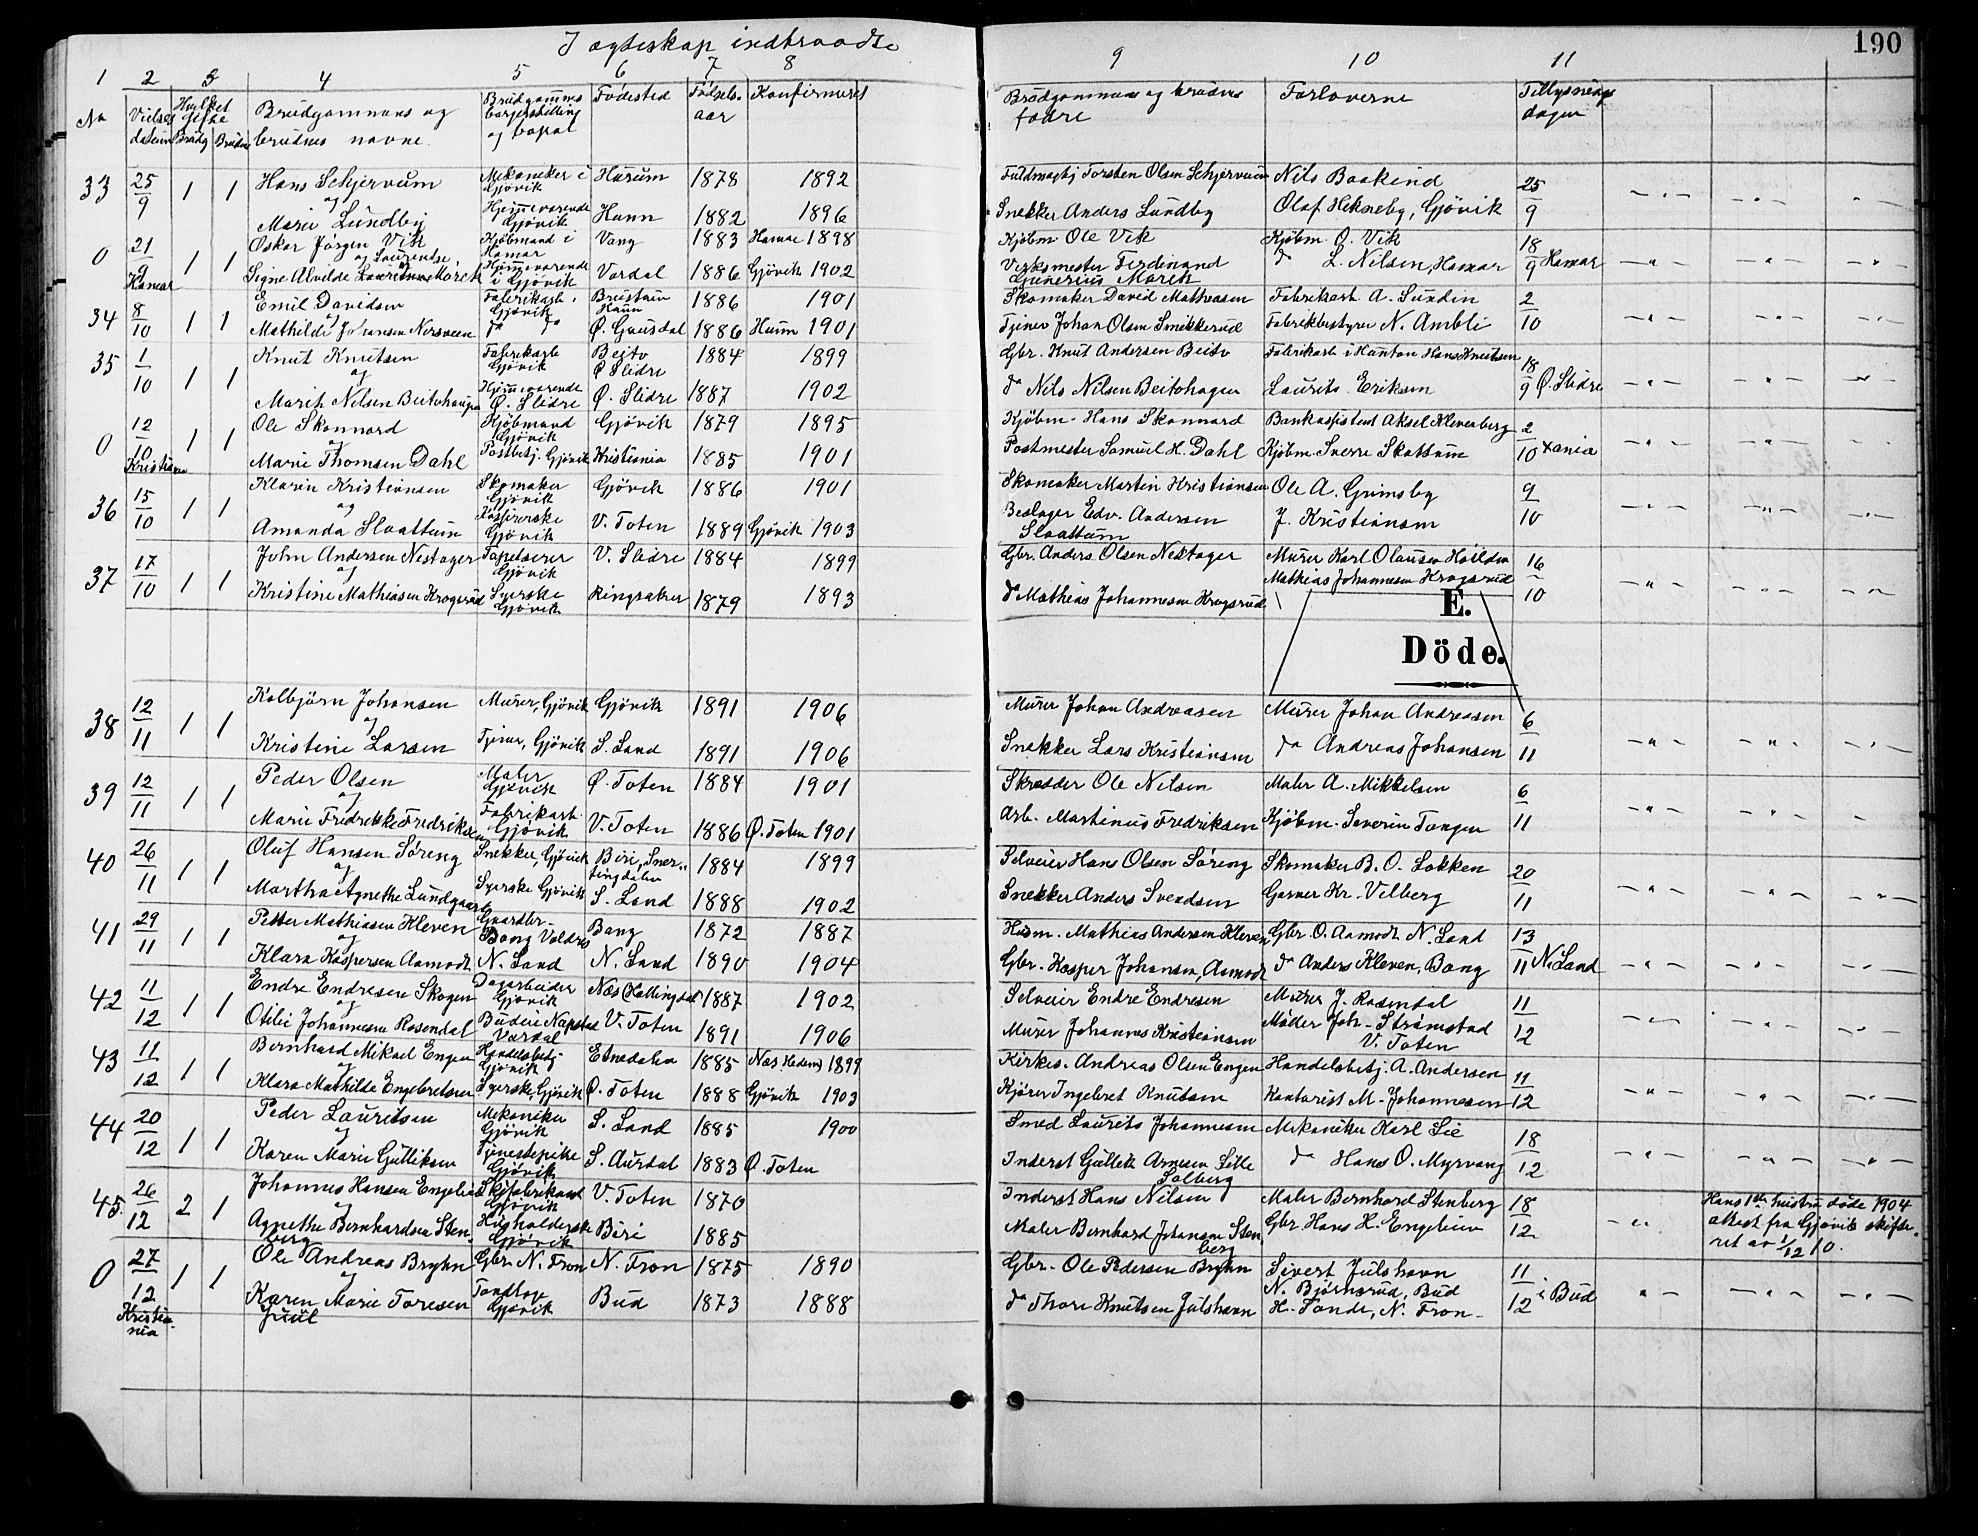 I ægteskap indtraadte
190
1 2 3 4 5 6 7 8 9 10 11
No Vielses datum Hvilket gifte Brudg Bruden Brudgommens og brudens navne. Brudgommes borgerstilling og bopæl Födested Födsels. aar Konfirmeret Brudgommens og brudens fædre Forloverne Tillysnings dagen
33 25/9 1 1 Hans Schjervum Mekaniker i Gjövik Hurum 1878 1892 Fuldmægtig Torsten Olsen Schjervum Nils Baakind 25/9
og
Marie Lundby Hjemmeværende Gjövik Hunn 1882 1896 Snekker Anders Lundby Olaf Hekneby, Gjövik
0 21/9 Hamar 1 1 Oskar Jörgen Vik Kjöbmand i Hamar Vang 1883 Hamar 1898 Kjöbm. Ole Vik Kjöbm. O. Vik 18/9 Hamar
og Laurentse
Signe Alvilde Marck Hjemmeværende i Gjövik Vardal 1886 Gjövik 1902 Verksmester Ferdinand Gunerius Marck do L. Nilsen, Hamar
34 8/10 1 1 Emil Davidsen Fabrikarb. Gjövik Hunn 1886 1901 Skomaker David Mathiasen Fabrikarb A. Sundin 2/10
og
Mathilde Johansen Nersveen do do Ø. Gausdal 1886 Hunn 1901 Tjener Johan Olsen Smikkerud Fabrikbestyrer N. Ambli
35 1/10 1 1 Knut Knutsen Fabrikarb Gjövik Beito Ø Slidre 1884 1899 Gbr. Knut Andersen Beito Fabrikarb i Hunton Hans Knutsen 18/9 Ø. Slidre
og
Marit Nilsen Beitohaugen Hjemmeværende Ø. Slidre Ø. Slidre 1887 1902 do Nils Nilsen Beitohagen Laurits Eriksen
0 12/10 Kristiania 1 1 Ole Skonnord Kjöbmand Gjövik Gjövik 1879 1895 Kjöbm. Hans Skonnord Bankassistent Aksel Klevenberg 2/10 Xania
og
Marie Thomsen Dahl Postbetj. Gjövik Kristiania 1885 1901 Postmester Samuel H. Dahl Kjöbm. Sverre Skattum
36 15/10 1 1 Klarin Kristiansen Skomaker Gjövik Gjövik 1886 1901 Skomaker Martin Kristiansen Ole A. Grimsby 9/10
og
Amanda Slaattum Kassererske Gjövik V. Toten 1889 Gjövik 1903 Beslager Edv. Andersen Slaattum J. Kristiansen
37 17/10 1 1 John Andersen Nestager Tapetserer Gjövik V. Slidre 1884 1899 Gbr. Anders Olsen Nestager Murer Karl Olausen 16/10
og
Kristine Mathiasen Krogsrud Syerske Gjövik Ringsaker 1879 1893 do Mathias Johannesen Krogsrud Mathias Johannesen Krogsrud
E.
Döde.
38 12/11 1 1 Kolbjörn Johansen Murer, Gjövik Gjövik 1891 1906 Murer Johan Andreasen Murer Johan Andreasen 6/11
og
Kristine Larsen Tjener, Gjövik S. Land 1891 1906 Snekker Lars Kristiansen do Andreas Johansen
39 12/11 1 1 Peder Olsen Maler Gjövik Ø. Toten 1884 1901 Skrædder Ole Nilsen Maler A. Mikkelsen 6/11
og
Marie Fredrekke Fredriksen Fabrikarb Gjövik V. Toten 1886 Ø. Toten 1901 Arb. Martinus Fredriksen Kjöbm. Severin Tangen
40 26/11 1 1 Oluf Hansen Söreng Snekker, Gjövik Biri, Snertingdalen 1884 1899 Selveier Hans Olsen Söreng Skomaker B. O. Lökken 20/11
og
Martha Agnethe Lundgaard Syerske Gjövik S. Land 1888 1902 Snekker Anders Svendsen Garver Kr. Vilberg
41 29/11 1 1 Petter Mathiasen Kleven Gaardbr. Bang Valdres Bang 1872 1887 Husm. Mathias Andersen Kleven Gbr. O. Aamodt N. Land 13/11 N. Land
og
Klara Kaspersen Aamodt N. Land N. Land 1890 1904 Gbr. Kasper Johansen, Aamodt do Anders Kleven, Bang
42 11/12 1 1 Endre Endresen Skogen Dagarbeider Gjövik Næs (Hallingdal 1887 1902 Selveier Endre Endresen Murer J. Rosendal 11/12
og
Otilie Johannesen Rosendal Budeie Vardal V. Toten 1891 1906 Murer Johannes Kristiansen Möder Joh. Strömstad V. Toten
43 11/12 1 1 Bernhard Mikael Engen Handelsbetj. Gjövik Etnedalen 1885 Næs Hedem. 1899 Kirkes. Andreas Olsen Engen Handelsbetj. A. Andersen 11/12
og
Klara Mathilde Engebretsen Syerske, Gjövik Ø. Toten 1888 Gjövik 1903 Kjörer Ingebret Knutsen Kontorist M. Johannesen
44 20/12 1 1 Peder Lauritsen Mekaniker Gjövik S. Land 1885 1900 Smed Laurits Johannesen Mekaniker Karl Lie 18/12
og
Karen Marie Gulliksen Tjenestepike Gjövik S. Aurdal 1883 Ø. Toten Inderst Gullik Arnesen Lille Solberg do Hans O. Myrvang
45. 26/12 2 1 Johannes Hansen Engelien Skifabrikant Gjövik V. Toten 1870 Inderst Hans Nilsen Maler Bernhard Stenberg 18/12 Hans 1ste hustru döde 1904 attest fra Gjövik skifteret av 1/12 10.
og
Agnethe Bernhardsen Stenberg Husholderske Gjövik Biri 1885 Maler Bernhard Johansen Stenberg Gbr. Hans H. Engelien
0 27/12 Kristiania 1 1 Ole Andreas Bryhn Gbr. N. Fron N. Fron 1875 1890 Gbr. Ole Pedersen Bryhn Sivert Julshavn 11/12 i Bud
og N. Björnsrud, Bud
Karen Marie Toresen Juul Tandlæge Gjövik Bud 1873 1888 do Thore Knutsen Julshavn H. Sande, N. Fron